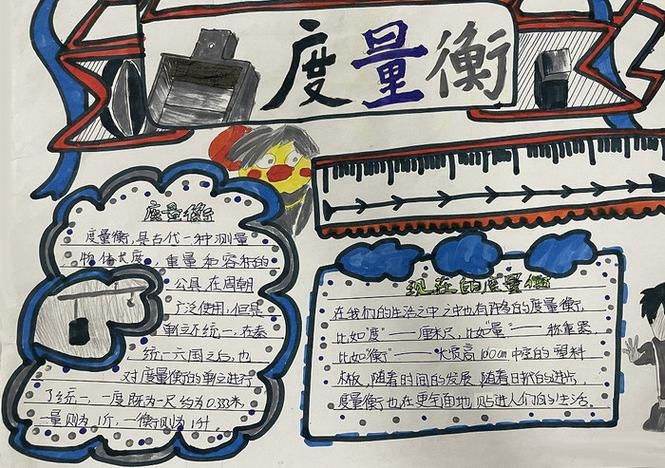 度量衡
度量衡
度量衡,是古代一种测量
物体长度,重量和容积的
公具在周朝
广泛使用,但其
制立不统一.在秦
统一六国之后,也
对度量衡的制立进行
了统一.一度既为一尺约为0.33米,
一量则为1斤,一衡则为1升.
现在的度量衡
在我们的生活之中之中也有所为的度量衡,
比如"度"——厘米尺,比如"量"——称重器,
比如"衡"——大质高100cm中空的塑料
木板,随着时间的发展,随着日积的进步,
度量衡也在更全面地 贴进人们的生活.